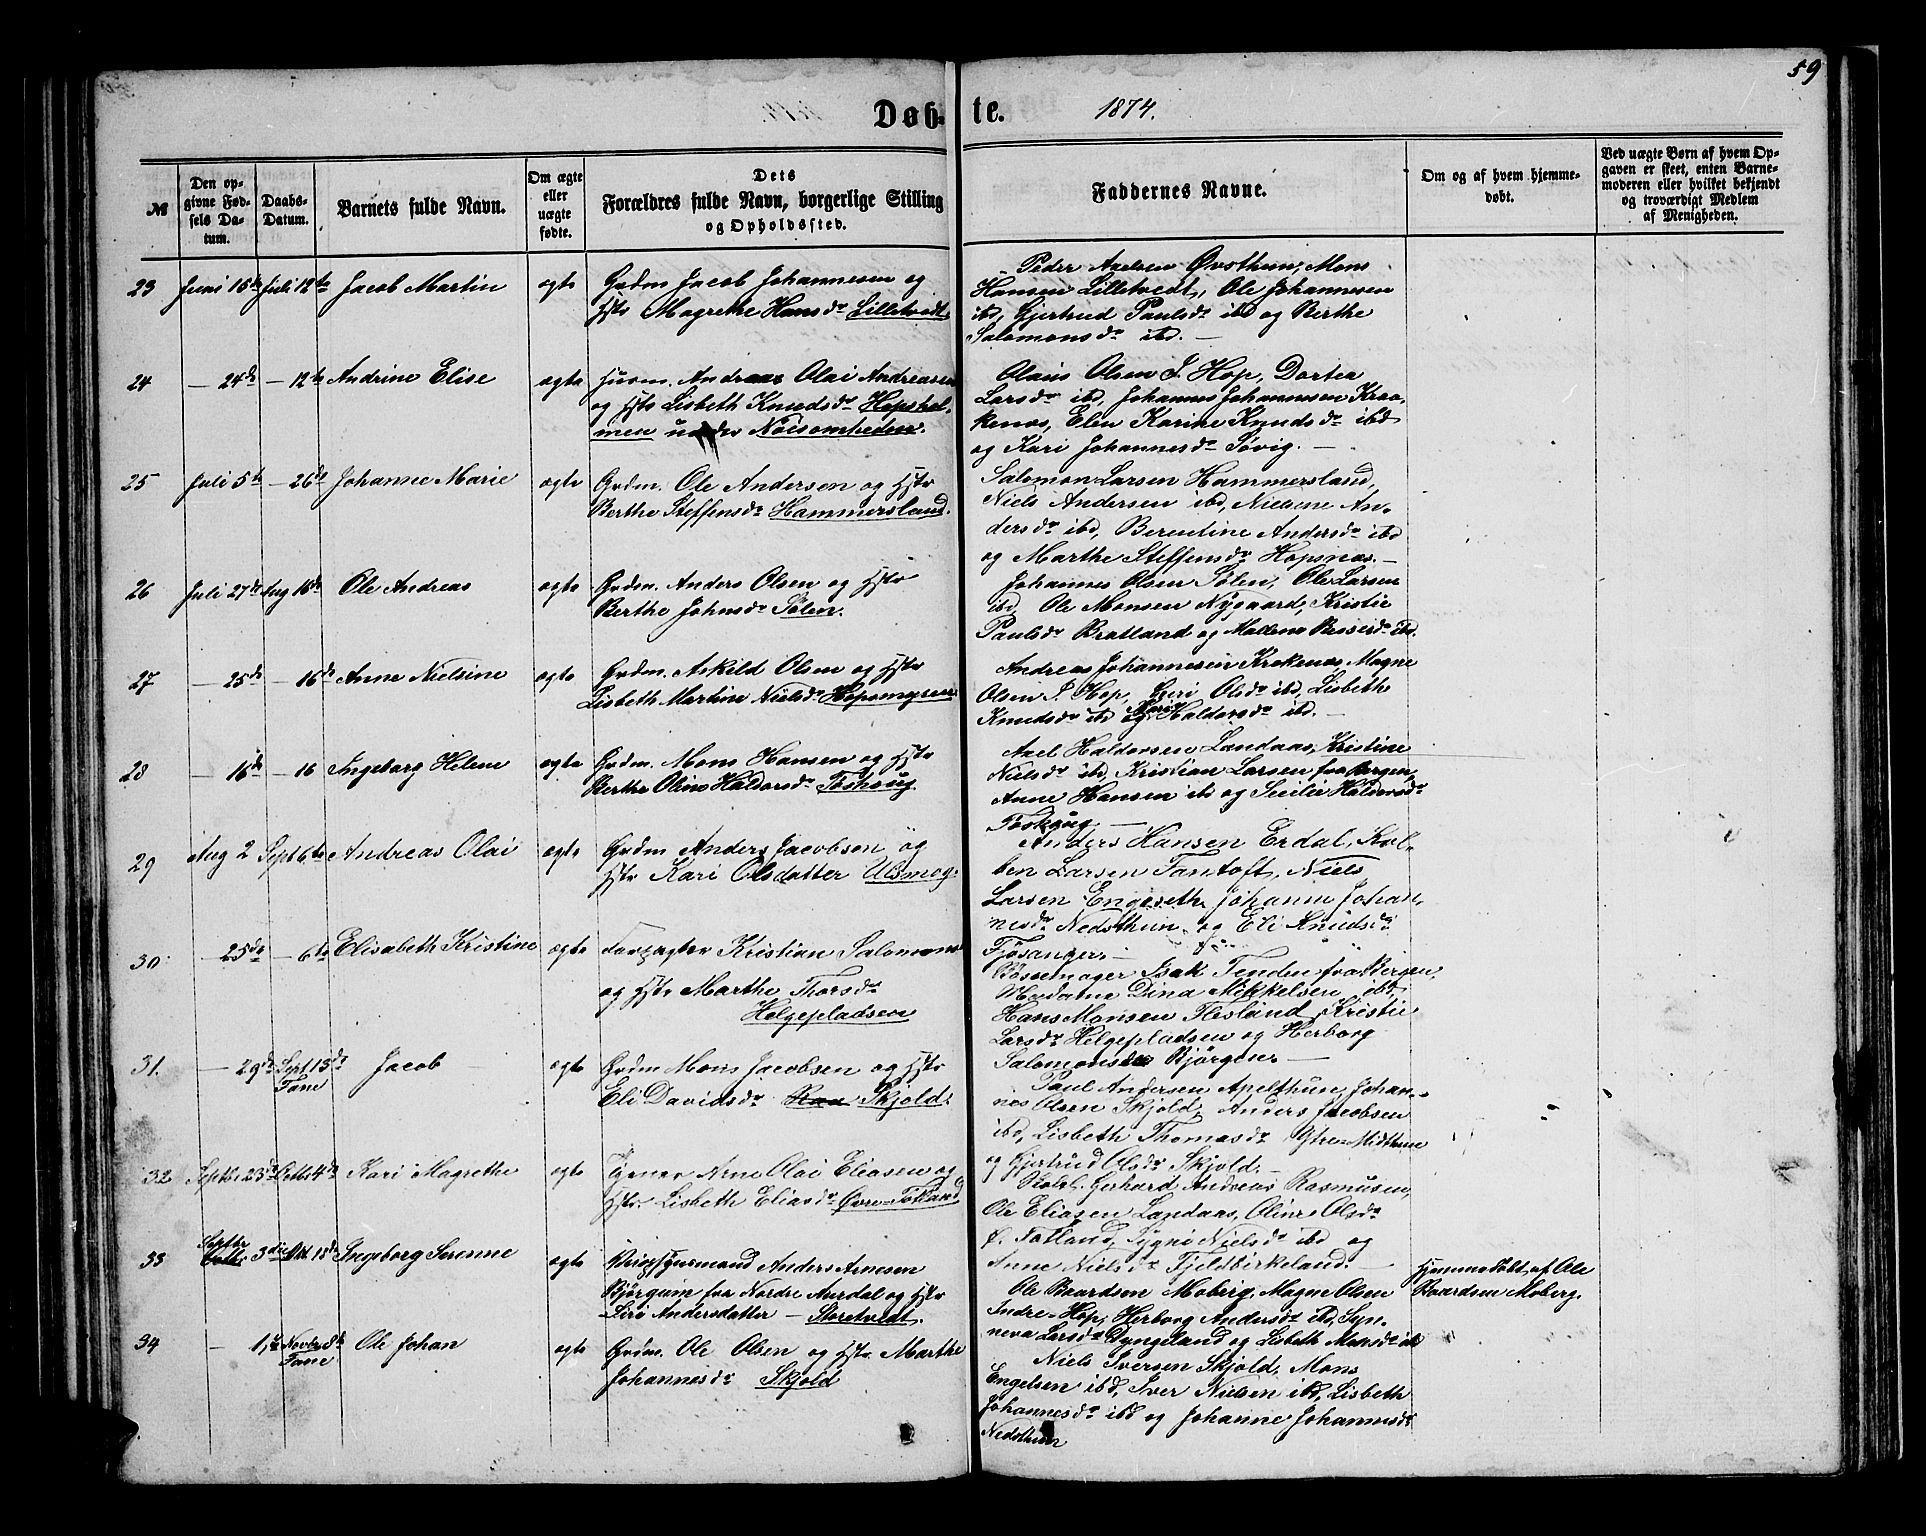 59
Døbte. 1874.
№
Den opgivne Fødsels Datum.
Daabs-Datum.
Barnets fulde Navn.
Om ægte eller uægte fødte.
Dets Forældres fulde Navn, borgerlige Stilling og Opholdssted.
Faddernes Navne.
Om og af hvem hjemmedøbt.
Ved uægte Børn af hvem Opgaven er skeet, enten Barnemoderen eller hvilket bekjendt og troværdigt Medlem af Menigheden.
23 Juni 15de Juli 12te Jacob Martin ægte Grdm Jacob Johannesen og
Hstr Magrethe Hansdr Lilletvedt.
Peder Axelsen Øvsthun, Mons
Hansen Lilletvedt, Ole Johannesen
ibd, Gjertrud Paulsdr ibd og Berthe
Salomonsdr ibd. —
24 — 24de — 12te Andrine Elise ægte Husm. Andreas Olai Andreasen
og Hstr Lisbeth Knudsdr Hopshol-
men under Nøisomheden.
Olaus Olsen I. Hop, Dortea
Larsdr ibd, Johannes Johannesen Kraa-
kenæs, Elen Karine Knudsdr ibd
og Kari Johannesdr Søvig. —
25 Juli 5te — 26de Johanne Marie ægte Grdm. Ole Andersen og Hstr
Berthe Steffensdr Hammersland.
Salomon Larsen Hammersland,
Niels Andersen ibd, Nielsine An-
dersdr ibd, Berentine Andersdr ibd
og Marthe Steffensdr Hopsnæs. —
26 Juli 27de Aug 16de Ole Andreas ægte Grdm. Anders Olsen og Hstr
Berthe Johnsdr Sølen.
Johannes Olsen Sølen, Ole Larsen
ibd, Ole Monsen Nygaard, Kristie
Paulsdr Bratland og Malena Bessesdr ibd.
27 — 25de — 16de Anne Nielsine ægte Grdm. Askild Olsen og Hstr
Lisbeth Martine Nielsdr Hopsmyren
Andreas Johannesen Krokenæs, Magne
Olsen I. Hop, Guri Olsdr ibd, Lisbeth
Knudsdr ibd og Mari Haldorsdr ibd. —
28 — 16de — 16 Ingeborg Helene ægte Grdm. Mons Hansen og Hstr
Berthe Oline Haldorsdr Tøshoug.
Axel Haldorsen Landaas, Kristine
Nielsdr ibd Kristian Larsen fra Bergen,
Anne Hansen ibd og Secilie Haldorsdr
Tøshoug. —
29 Aug 2 Sept 6te Andreas Olai ægte Grdm Anders Jacobsen og
Hstr Kari Olsdatter Ulsmog.
Anders Hansen Erdal, Kol-
ben Larsen Fantoft, Niels
Larsen Engeseth, Johanne Johan-
nesdr Nedsthun og Eli Knudsdr
Fjøsanger. —
30 — 25de — 6te Elisabeth Kristine ægte Forpagter Kristian Salomons
og Hstr Marthe Thorsdr
Helgepladsen
Bøssemager Isak Tenden fra Bergen,
Madame Dina Mikkelsen ibd,
Hans Monsen Flesland, Kristie
Larsdr Helgepladsen og Herborg
Salomonsdr Bjørgene —
31. — 29de Sept 13de
Fane
Jacob — ægte Grdm Mons Jacobsen og Hstr
Eli Davidsdr Skjold.
Paul Andersen Apelthun, Johan-
nes Olsen Skjold, Anders Jacobsen
ibd, Lisbeth Thomasdr Ytre-Midthun
og Gjertrud Olsdr Skjold. —
32 Septbr 23de Octbr 4de Kari Magrethe ægte Tjener Arne Olai Eliasen og
Hstr. Lisbeth Eliasdr Øvre-Totland
Gerhard Andreas Rasmusen,
Ole Eliasen Landaas, Oline Olsdr
Ø. Totland, Sygni Nielsdr ibd og
Anne Nielsdr Fjeldbirkeland. —
33 Septbr 3die Okt 18de Ingeborg Serenne ægte Anders Arnesen
Bjørgum fra Nordre Aurdal og Hstr
Siri Andersdatter — Storetvedt.
Ole Baardsen Moberg, Magne Olsen
Indre-Hop, Herborg Andersdr ibd, Syn-
neva Larsdr Dyngeland og Lisbeth Monsdr ibd
Hjemmedøbt af Ole
Baardsen Moberg.
34 — 1ste Novbr 8de
Fane
Ole Johan ægte Grdm. Ole Olsen og Hstr. Marthe
Johannesdr Skjold
Niels Iversen Skjold, Mons
Engelsen ibd, Iver Nielsen ibd, Lisbeth
Johannesdr ibd og Johanne Johannesdr
Nedsthun